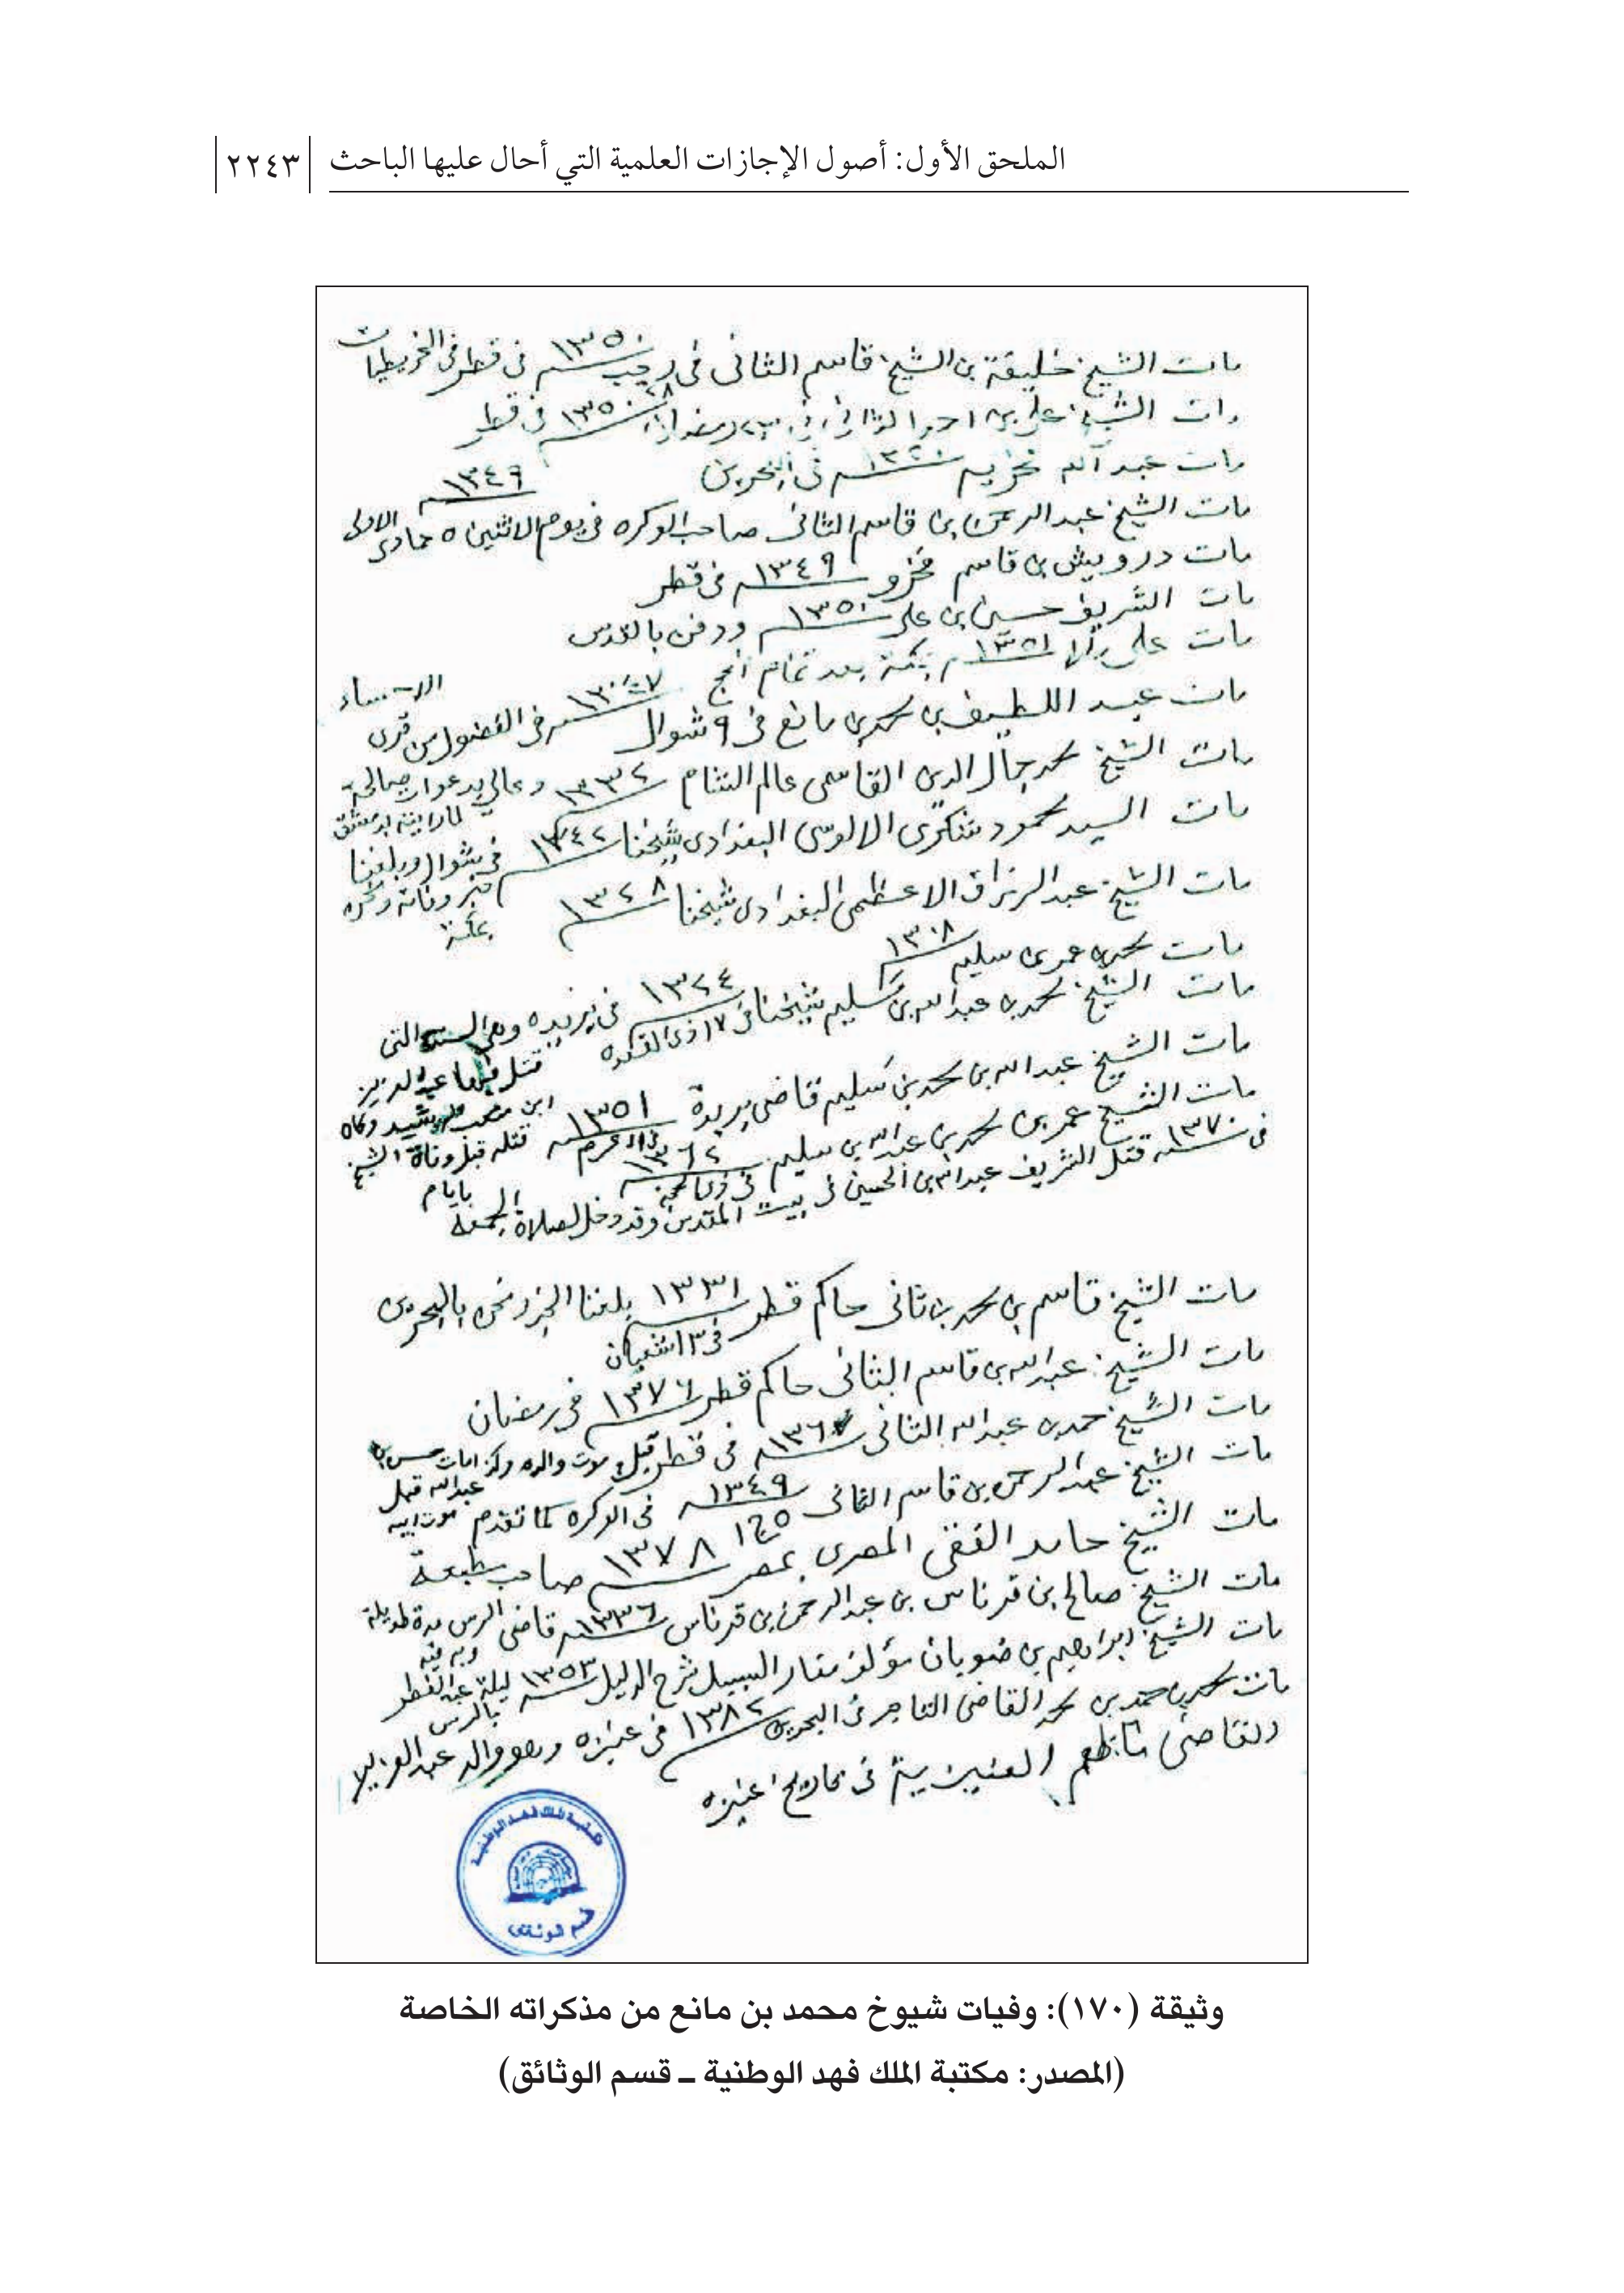 الملحق الأول: أصول الإجازات العلمية التي أحال عليها الباحث
٢٢٤٣
مات الشيخ خليفة بن الشيخ قاسم الثانى فى رجب سنة ١٣٥٠ فى قطر فى الخريطيات
مات الشيخ على بن احمد الثانى رمضان سنة ١٣٥٠ فى قطر
مات عبد الله فى البحرين
مات الشيخ عبد الرحمن بن قاسم الثانى صاحب الوكره فى يوم الاثنين ٥ جمادى الاولى سنة ١٣٤٩
مات درويش بن قاسم فخرو سنة ١٣٤٩ فى قطر
مات الشريف حسين بن على سنة ١٣٥٠ ودفن بالقدس
مات على سنة ١٣٥١ بمكة بعد تمام الحج
مات عبد اللطيف بن محمد بن مانع فى ٩ شوال فى الفضول من قرى الاحساء
مات الشيخ محمد جمال الدين القاسمى عالم الشام سنة ١٣٣٢ ودعالى بدعوات صالحة لما رايته بدمشق
مات السيد محمود شكرى الالوسى البغدادى شيخنا سنة ١٣٤٢ فى شوال وبلغنا خبر وفاته ونحن بمكة
مات الشيخ عبد الرزاق الاعظمى البغدادى شيخنا سنة ١٣٢٨
مات محمد بن عمر بن سليم سنة ١٣٠٨
مات الشيخ محمد بن عبد الله بن سليم شيخنا فى ١٧ ذى القعدة سنة ١٣٢٤ فى بريده وهى السنة التى
قتل فيها عبد العزيز
ابن متعب الرشيد وكان
قتله قبل وفاة الشيخ
بايام
مات الشيخ عبد الله بن محمد بن سليم قاضى بريدة سنة ١٣٥١
مات الشيخ عمر بن محمد بن عبد الله بن سليم سنة ١٣٦٢ فى ذى الحجة
فى سنة ١٣٧٠ قتل الشريف عبد الله بن الحسين فى بيت المقدس وقد دخل لصلاة الجمعة
مات الشيخ قاسم بن محمد بن ثانى حاكم قطر سنة ١٣٣١ بلغنا الخبر ونحن بالبحرين
فى ١٣ شعبان
مات الشيخ عبد الله بن قاسم الثانى حاكم قطر سنة ١٣٧٦ فى رمضان
مات الشيخ حمد بن عبد الله الثانى سنة ١٣٦٧ فى قطر قبل موت والده وكذا مات حسن بن
عبد الله قبل
موت ابيه
مات الشيخ عبد الرحمن بن قاسم الثانى سنة ١٣٤٩ فى الوكره كما تقدم
مات الشيخ حامد الفقى المصرى بمصر سنة ١٣٧٨ صاحب مطبعة
مات الشيخ صالح بن قرناس بن عبد الرحمن بن قرناس سنة ١٣٣٦ قاضى الرس مدة طويلة
مات الشيخ ابراهيم بن ضويان مؤلف منار السبيل شرح الدليل سنة ١٣٥٣ ليلة عيد الفطر
بالرس
مات محمد بن حمد بن محمد القاضى التاجر فى البحرين سنة ١٣٨٢ فى عنيزه وهو والد عبد العزيز
القاضى ناظم العنيزية فى تاريخ عنيزه
مكتبة الملك فهد الوطنية
قسم الوثائق
وثيقة (١٧٠): وفيات شيوخ محمد بن مانع من مذكراته الخاصة
(المصدر: مكتبة الملك فهد الوطنية ــ قسم الوثائق)